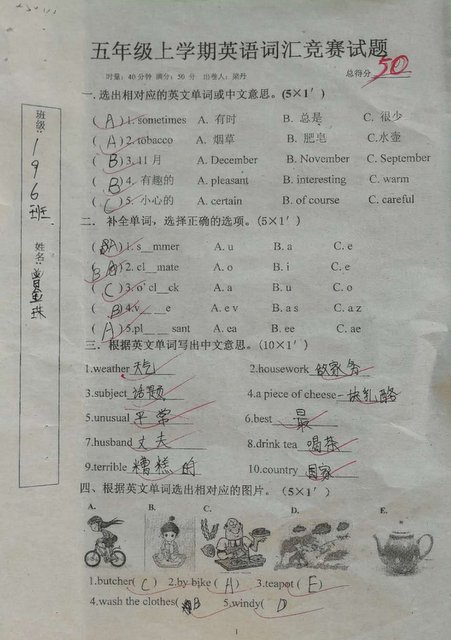 五年级上学期英语词汇竞赛试题
时量：40分钟 满分：50分 出卷人：梁丹 总得分 50
一.选出相对应的英文单词或中文意思。(5×1′)
( A )1. sometimes A. 有时 B. 总是 C. 很少
( A )2. tobacco A. 烟草 B. 肥皂 C.水壶
( B )3. 11月 A. December B. November C. September
( B )4. 有趣的 A. pleasant B. interesting C. warm
( C )5. 小心的 A. certain B. of course C. careful
二. 补全单词，选择正确的选项。(5×1′)
( A )1. s__mmer A. u B. a C. e
( B )2. cl__mate A. o B. i C. e
( C )3. o' cl__ck A. a B. u C. o
( B )4.v__ __e A. e v B. a s C. a z
( A )5.pl__ __sant A. ea B. ee C. ae
三. 根据英文单词写出中文意思。(10×1′)
1.weather 天气 2.housework 做家务
3.subject 话题 4.a piece of cheese 一块乳酪
5.unusual 平常 6.best 最
7.husband 丈夫 8.drink tea 喝茶
9.terrible 糟糕的 10.country 国家
四、根据英文单词选出相对应的图片。(5×1′)
A. B. C. D. E.
1.butcher( C ) 2.by bike( A ) 3.teapot( E )
4.wash the clothes( B ) 5.windy( D )
1
班级：196班
姓名：曾星珠